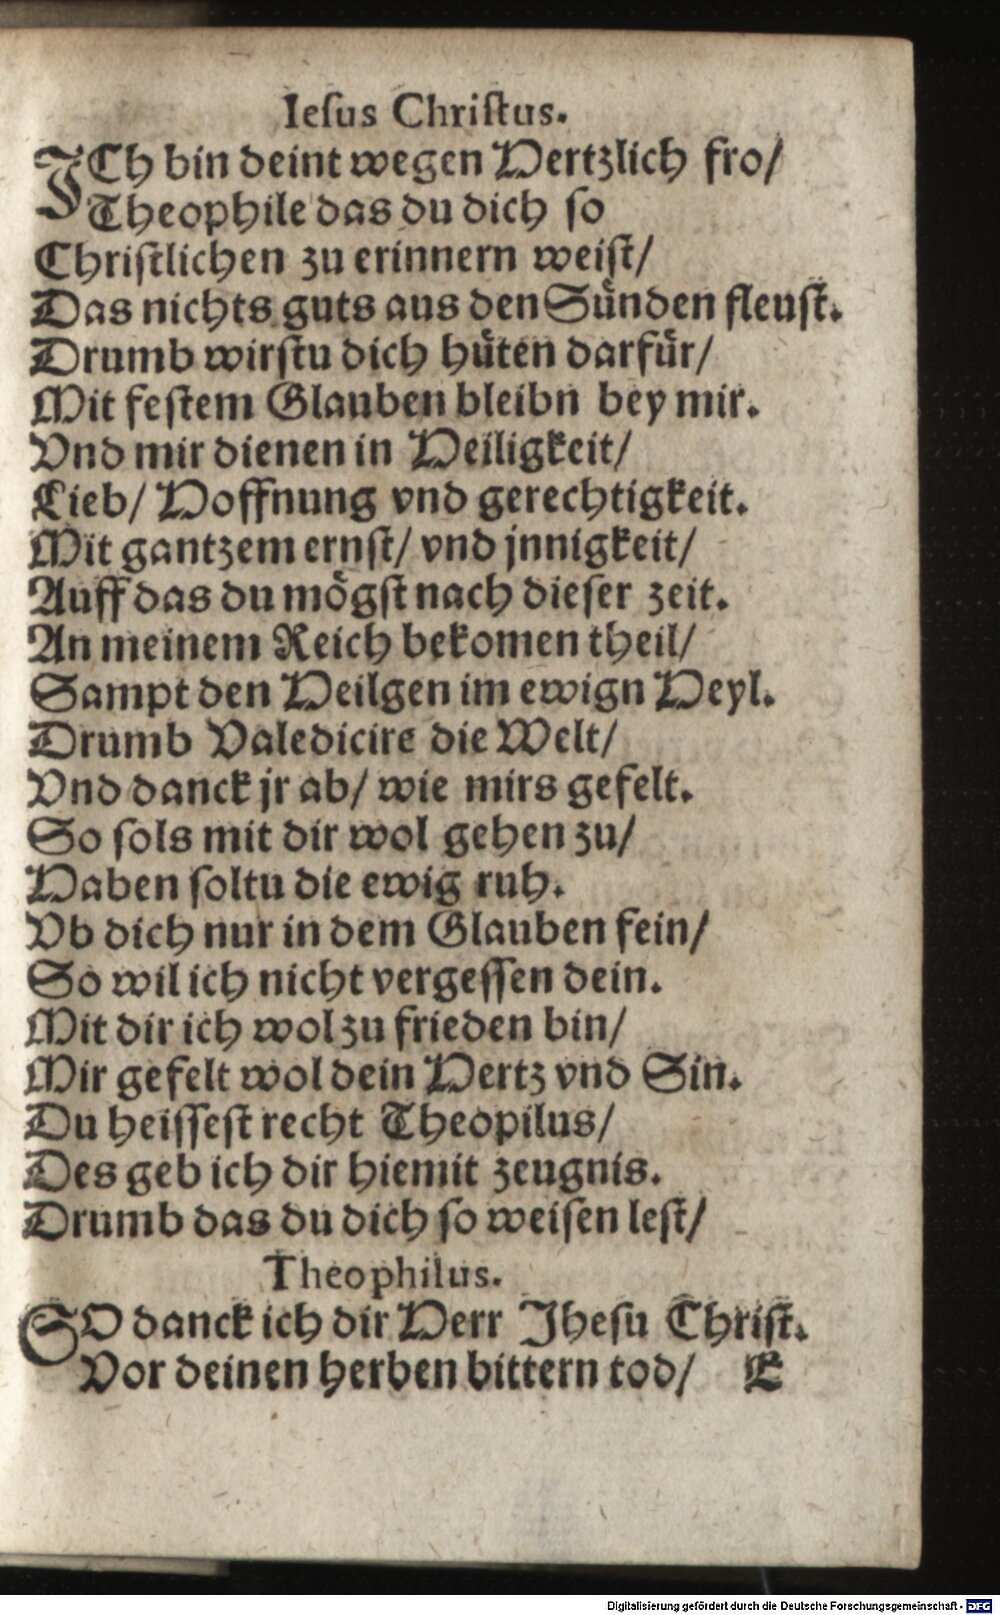 Ieſus Chriſtus.
ICh bin deint wegen Hertzlich fro/
Theophile das du dich ſo
Chriſtlichen zu erinnern weiſt/
Das nichts guts aus den Sünden fleuſt.
Drumb wirſtu dich hüten darfür/
Mit feſtem Glauben bleibn bey mir.
Vnd mir dienen in Heiligkeit/
Lieb/ Hoffnung vnd gerechtigkeit.
Mit gantzem ernſt/ vnd jnnigkeit/
Auff das du mögſt nach dieſer zeit.
An meinem Reich bekomen theil/
Sampt den Heilgen im ewign Heyl.
Drumb Valedicire die Welt/
Vnd danck jr ab/ wie mirs gefelt.
So ſols mit dir wol gehen zu/
Haben ſoltu die ewig ruh.
Vb dich nur in dem Glauben fein/
So wil ich nicht vergeſſen dein.
Mit dir ich wol zu frieden bin/
Mir gefelt wol dein Hertz vnd Sin.
Du heiſſeſt recht Theopilus/
Des geb ich dir hiemit zeugnis.
Drumb das du dich ſo weiſen leſt/
Theophilus.
SO danck ich dir Herr Jheſu Chriſt.
Vor deinen herben bittern tod/ E
Digitalisierung gefördert durch die Deutsche Forschungsgemeinschaft - DFG